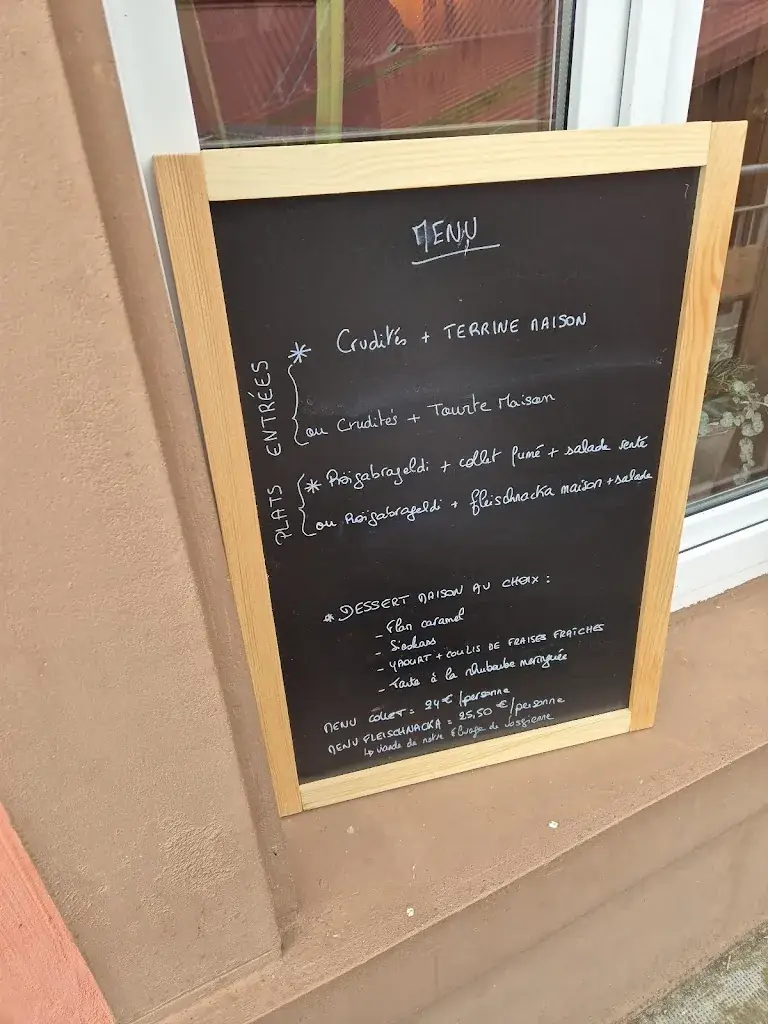 MENU
ENTRÉES
* Crudités + TERRINE MAISON
ou Crudités + Tourte Maison
PLATS
* Roïgabrageldi + collet fumé + salade verte
ou Roïgabrageldi + fleischnacka maison + salade
* DESSERT MAISON AU CHOIX :
- Flan caramel
- Siaskass
- YAOURT + COULIS DE FRAISES FRAÎCHES
- Tarte à la rhubarbe meringuée
MENU COLLET = 24 € /personne
MENU FLEISCHNACKA = 25,50 €/personne
↳ viande de notre élevage de vosgienne